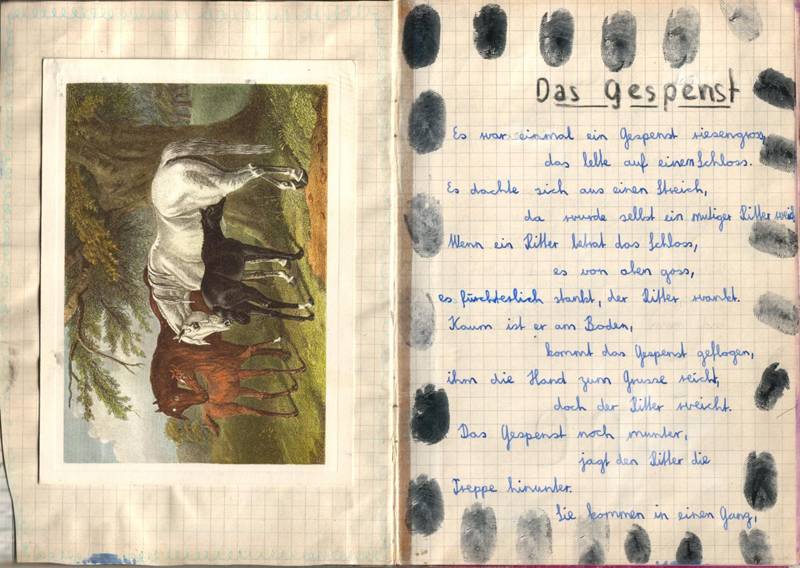 Das Gespenst
Es war einmal ein Gespenst riesengross,
das lebte auf einem Schloss.
Es dachte sich aus einen Streich,
da wurde selbst ein mutiger Ritter weich.
Wenn ein Ritter betrat das Schloss,
es von oben goss,
es fürchterlich stankt, der Ritter wankt.
Kaum ist er am Boden,
kommt das Gespenst geflogen,
ihm die Hand zum Grusse reicht,
doch der Ritter weicht.
Das Gespenst noch munter,
jagt den Ritter die
Treppe hinunter.
Sie kommen in einen Gang,